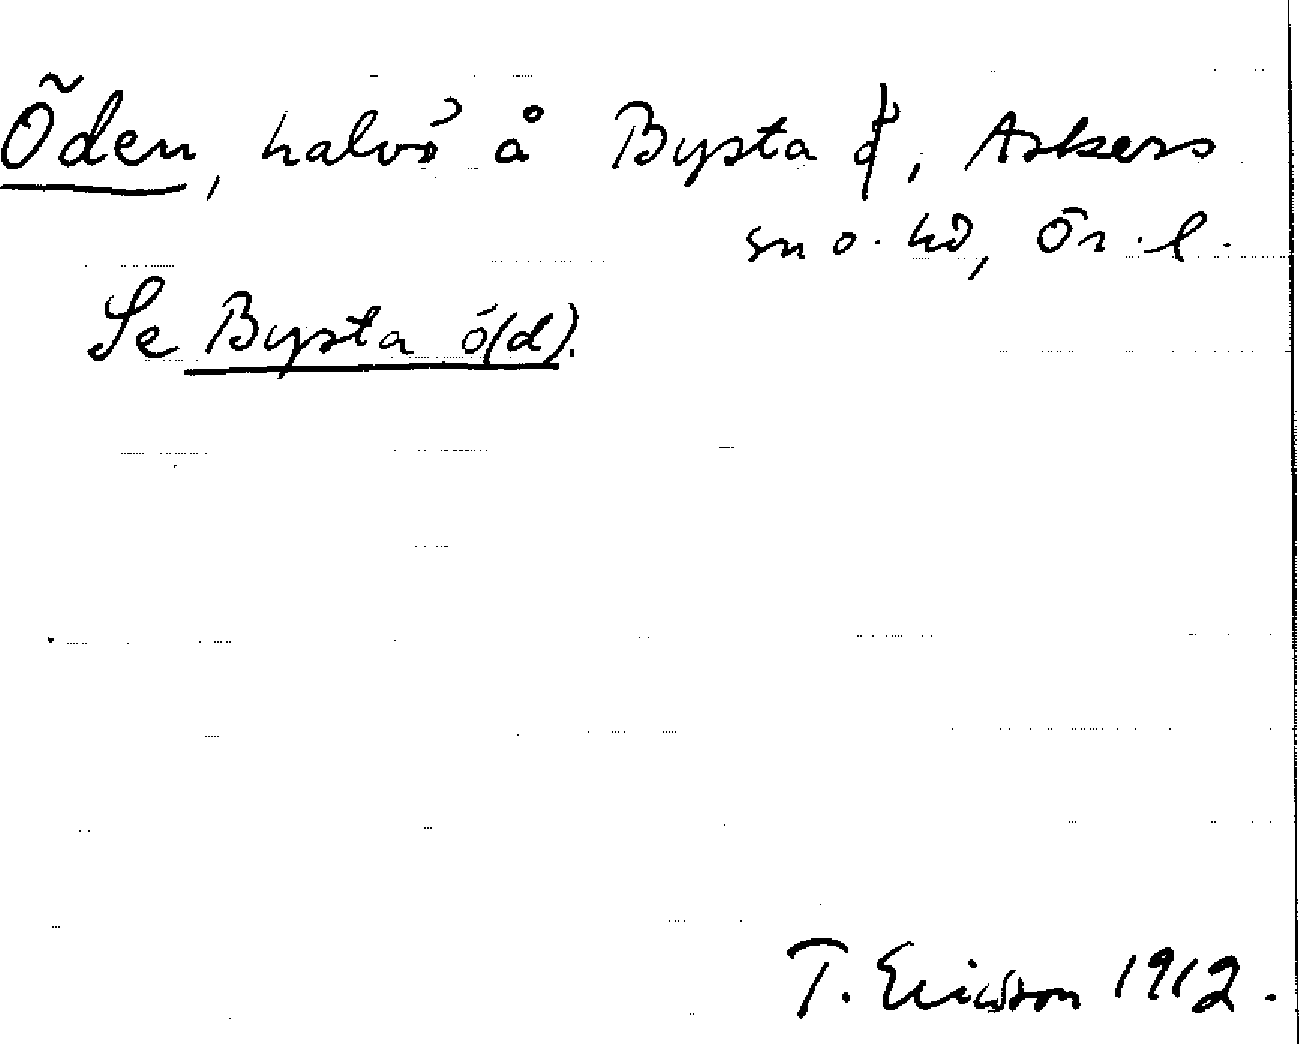 Öden, halvö å Bysta ⨍, Askers
sn o. hd, Ör. l.
Se Bysta ö(d).
T. Ericsson 1912.